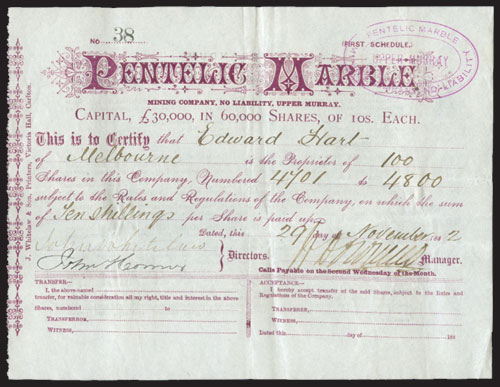 No 38 (FIRST SCHEDULE.)
PENTELIC MARBLE
MINING COMPANY, NO LIABILITY, UPPER MURRAY.
CAPITAL, £30,000, IN 60,000 SHARES, OF 10S. EACH.
This is to Certify that Edward Hart
of Melbourne is the Proprietor of 100
Shares in this Company, Numbered 4701 to 4800
subject to the Rules and Regulations of the Company, on which the sum
of Ten shillings per Share is paid up.
Dated, this 29 day of November 1882
Directors.
John
Manager.
Calls Payable on the Second Wednesday of the Month.
TRANSFER.—
I, the above-named
transfer, for valuable consideration all my right, title and interest in the above
Shares, numbered to
TRANSFEROR,
WITNESS,
ACCEPTANCE.—
I hereby accept transfer of the said Shares, subject to the Rules and
Regulations of the Company.
TRANSFEREE,
WITNESS,
Dated this day of 188
J. Whitelaw & Son, Printers, Victoria Hall, Carlton.
PENTELIC MARBLE
UPPER MURRAY